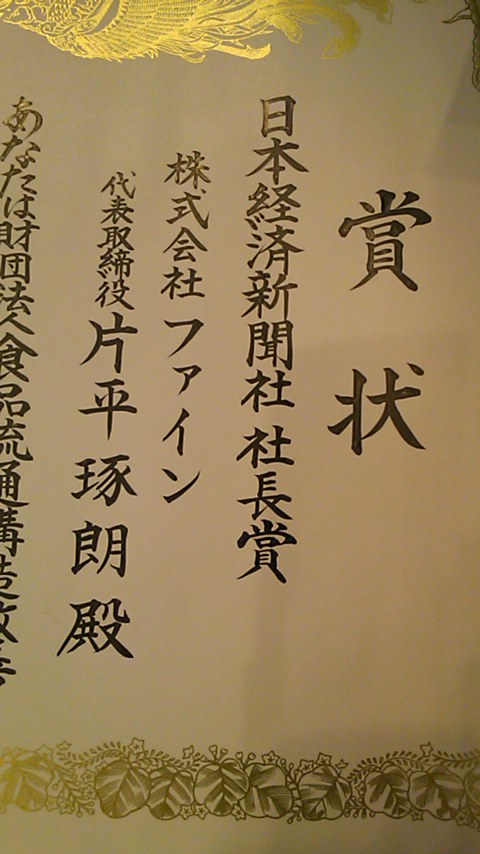 賞状
日本経済新聞社 社長賞
株式会社 ファイン
代表取締役 片平琢朗 殿
あなたは財団法人食品流通構造改善